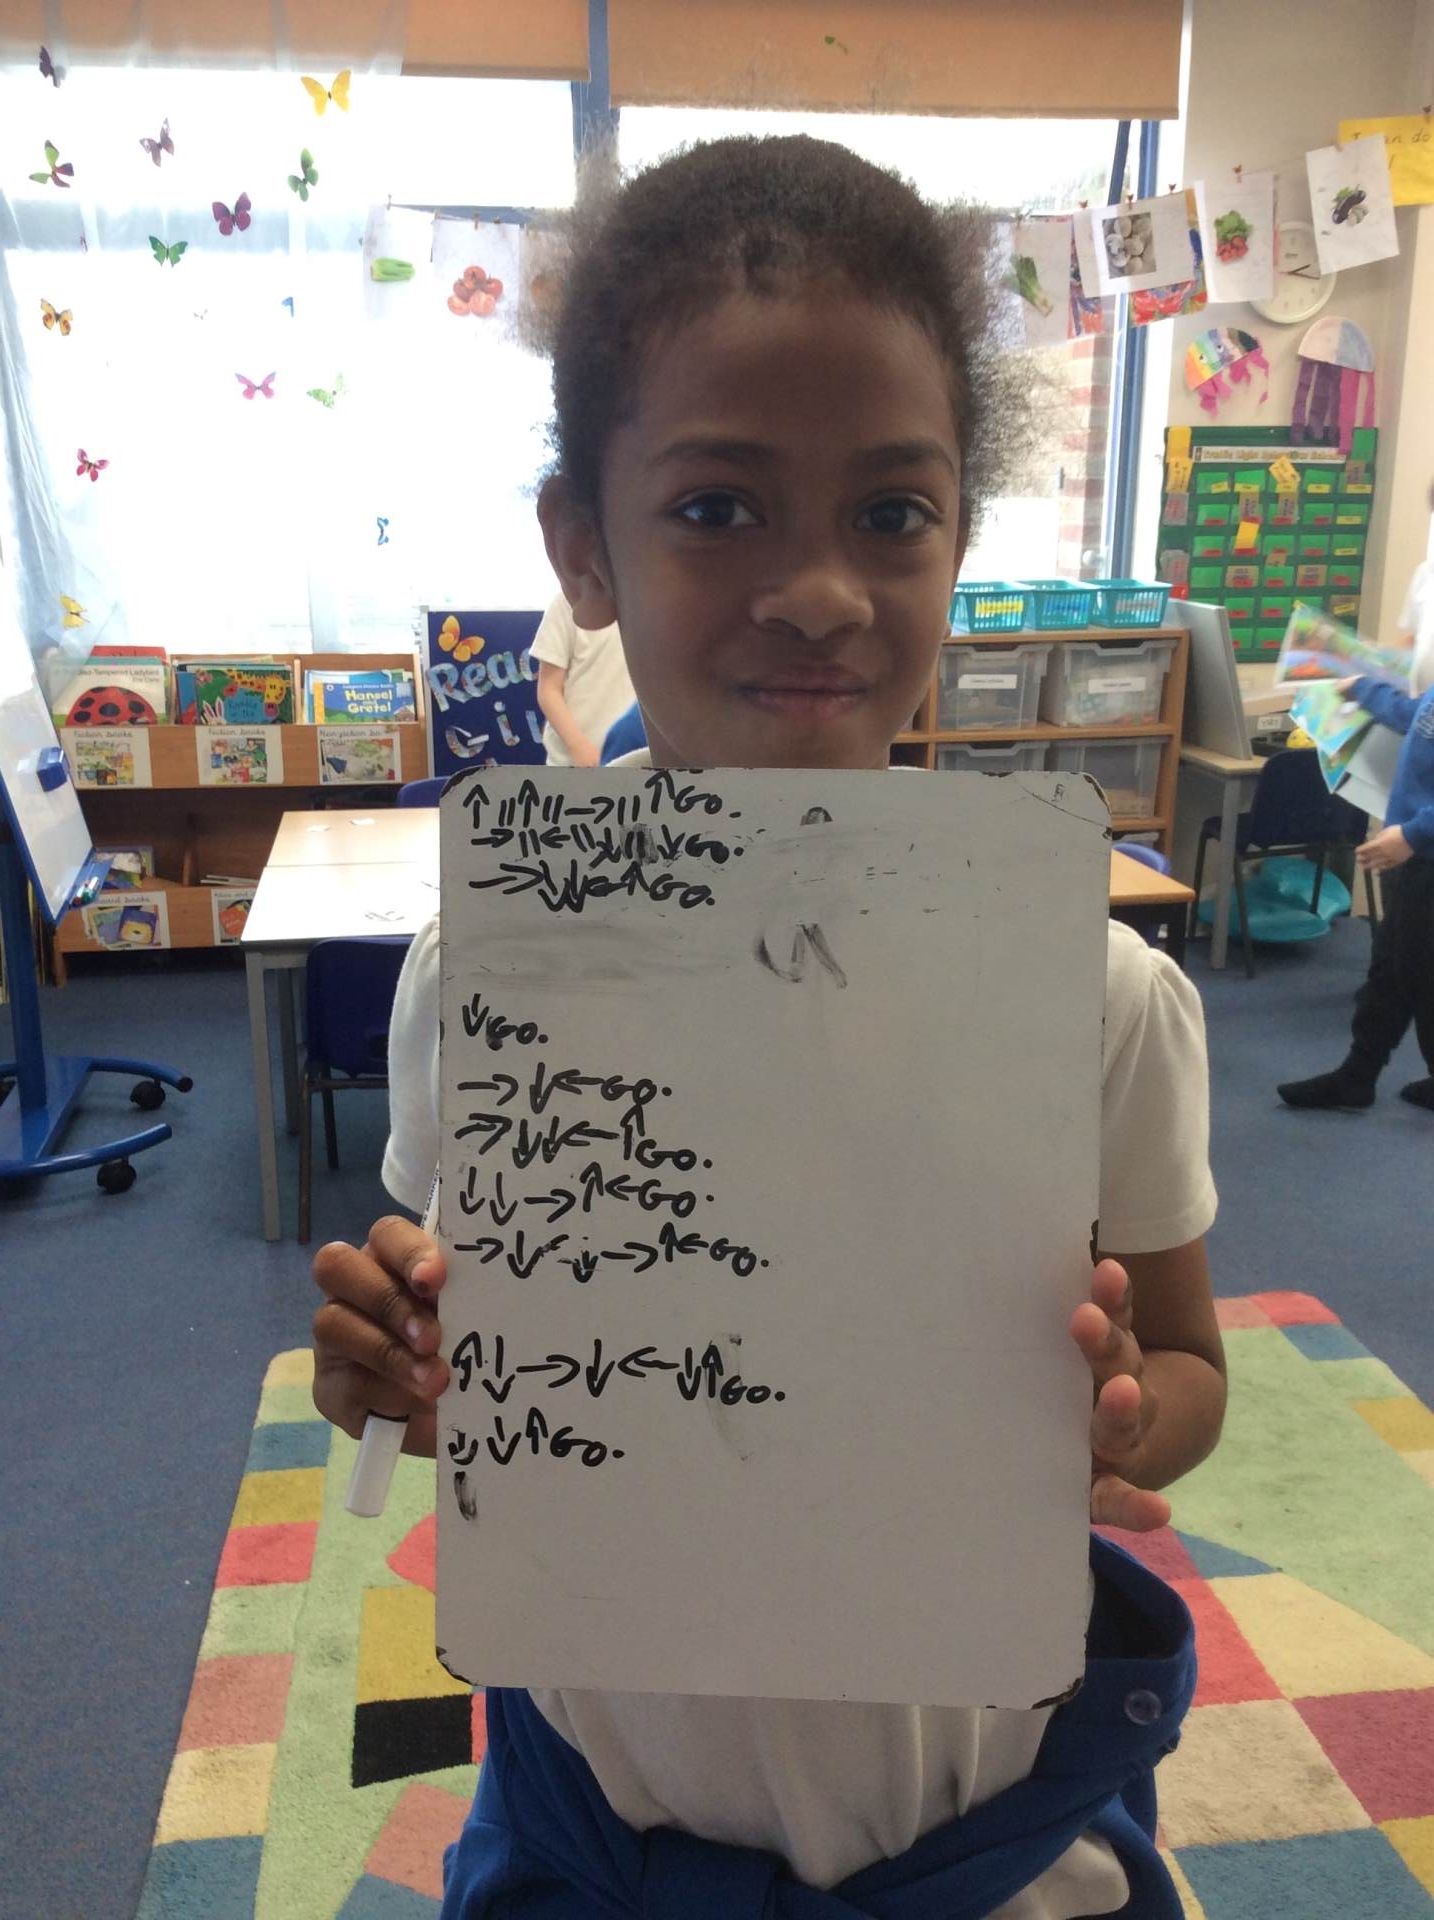 ↑ || ↑ || → || ↑ Go.
→ || ← || ↓ || ↓ Go.
→ ↓ ↓ ← ↑ Go.
↓ Go.
→ ↓ ← Go.
→ ↓ ↓ ← ↑ Go.
↓ ↓ → ↑ ← Go.
→ ↓ ← ↓ → ↑ ← Go.
↑ ↓ → ↓ ← ↓ ↑ Go.
↓ ↓ ↑ Go.
Read
Hansel
and
Gretel
Fiction books
Fiction books
Non-fiction